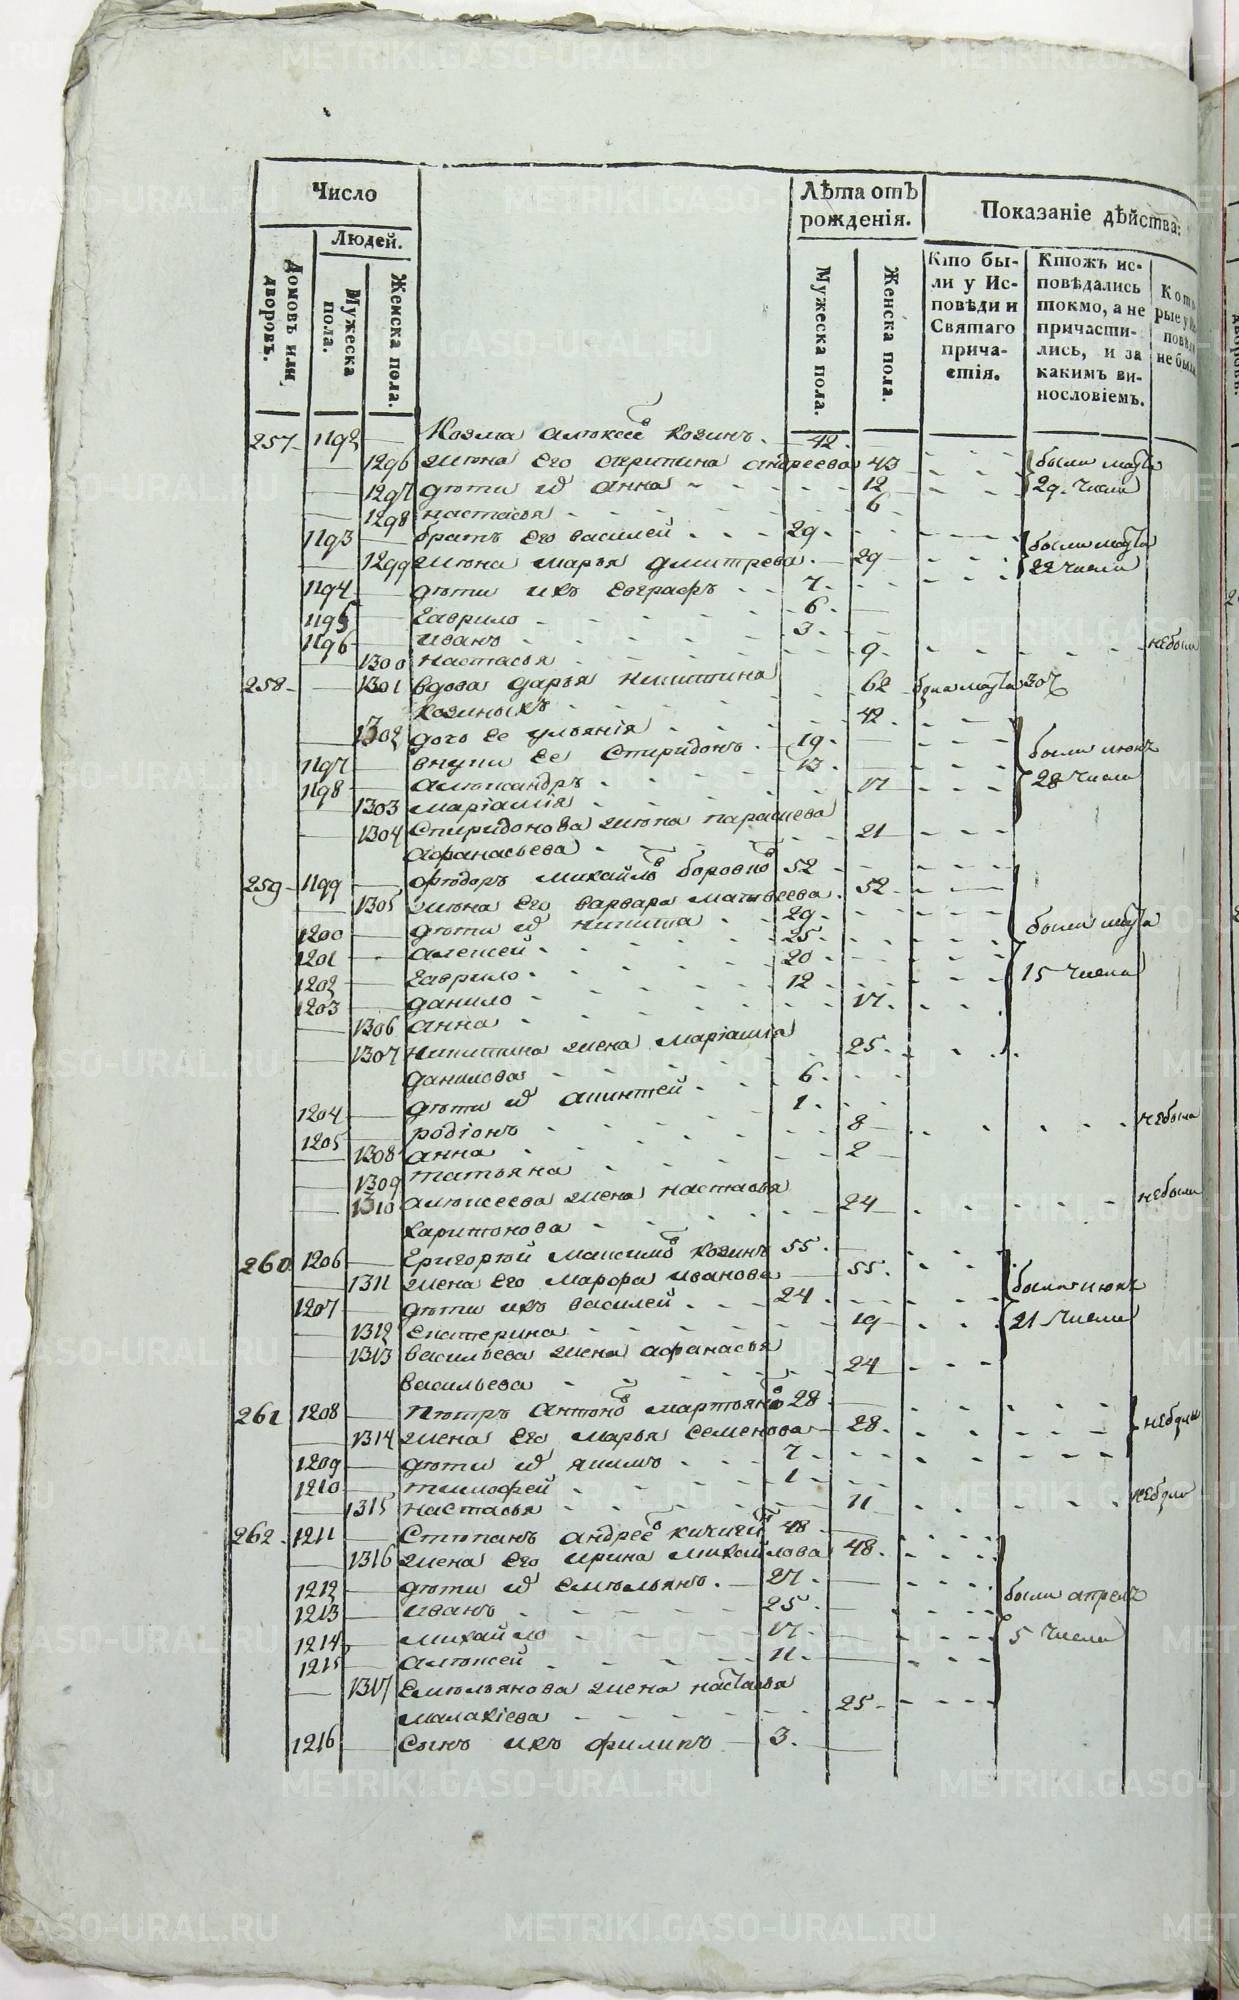 Число
Людей.
Домовъ или дворовъ.
Мужеска пола.
Женска пола.
Лѣта отъ рожденія.
Мужеска пола.
Женска пола.
Показаніе дѣйства:
Кто бы-
ли у Ис-
повѣди и
Святаго
прича-
стія.
Ктожъ ис-
повѣдались
токмо, а не
причасти-
лись, и за
какимъ ви-
нословіемъ.
257 1192 Козма алѣксеев козинъ 42
1296 жѣна его окрипина андреева 43 были марта
1297 дѣти их анна 12 29 числа
1298 настасья 6
1193 братъ его василей 29 были марта
1299 жѣна марья дмитрева 29 22 числа
1194 дѣти ихъ евграфъ 7
1195 гаврило 6
1196 иванъ 3
1300 настасья 9 небыли
258 1301 вдова дарья никитина 62 была марта 30
козиныхъ
1302 дочь ее ульянія 42
1197 внуки ее спиридонъ 19 были июня
1198 алѣксандръ 13 28 числа
1303 маріамія 17
1304 спиридонова жѣна параскева 21
афанасьева
259 1199 фѣдоръ михайлов боровков 52
1305 жѣна его варвара матвѣева 52
1200 дѣти их никита 29 были марта
1201 алексей 25
1202 гаврило 20 15 числа
1203 данило 12
1306 анна 17
1307 никитина жена маріамія 25
данилова
1204 дѣти их акинтей 6
1205 родіонъ 1
1308 анна 8 небыли
1309 татьяна 2
1310 алѣксеева жена настасья 24 небыли
харитонова
260 1206 григорѣй максимов козинъ 55
1311 жена его марфа иванова 55 были июня
1207 дѣти ихъ василей 24
1312 екатерина 19 21 числа
1313 васильева жена афанасья 24
васильева
261 1208 пѣтръ антонов мартьянов 28
1314 жена его марья семенова 28 небыли
1209 дѣти их якимъ 7
1210 тимофей 1
1315 настасья 11 небыли
262 1211 стѣпанъ андреев кичигин 48
1316 жена его ирина михайлова 48
1212 дѣти их емѣльянъ 27 были апреля
1213 иванъ 25
1214 михайло 17 5 числа
1215 алѣксей 11
1317 емѣльянова жена настасья 25
малахіева
1216 сынъ ихъ филипъ 3